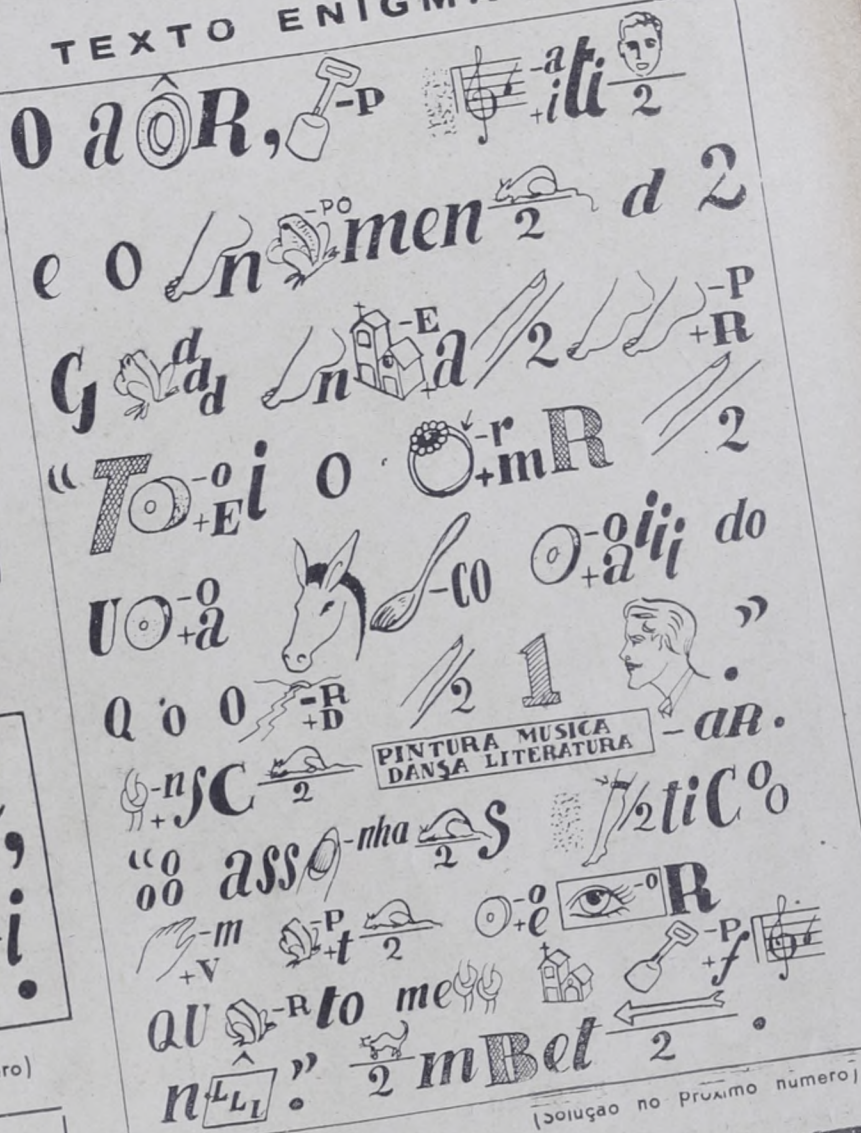 TEXTO ENIGM
O aÔR, -P -a +i iti 2
e o n -PO men 2 d 2
G d d d n -E +a 2 -P +R
“To -o +E i o -r +m R 2
U -o +a -CO -o +a iii do
”.
Q o O -R +D 2 1
-n + s C 2 PINTURA MUSICA DANSA LITERATURA - aR.
“o oo ass -nha 2 s 2 tiC o o
-m +v -P +t 2 -o +e -o R
QU -R to me -P +f
n LLL ”. 2 mBet 2 .
(solução no próximo número)
ro)
i.